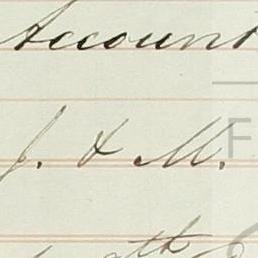 Account
J. & M.
F.